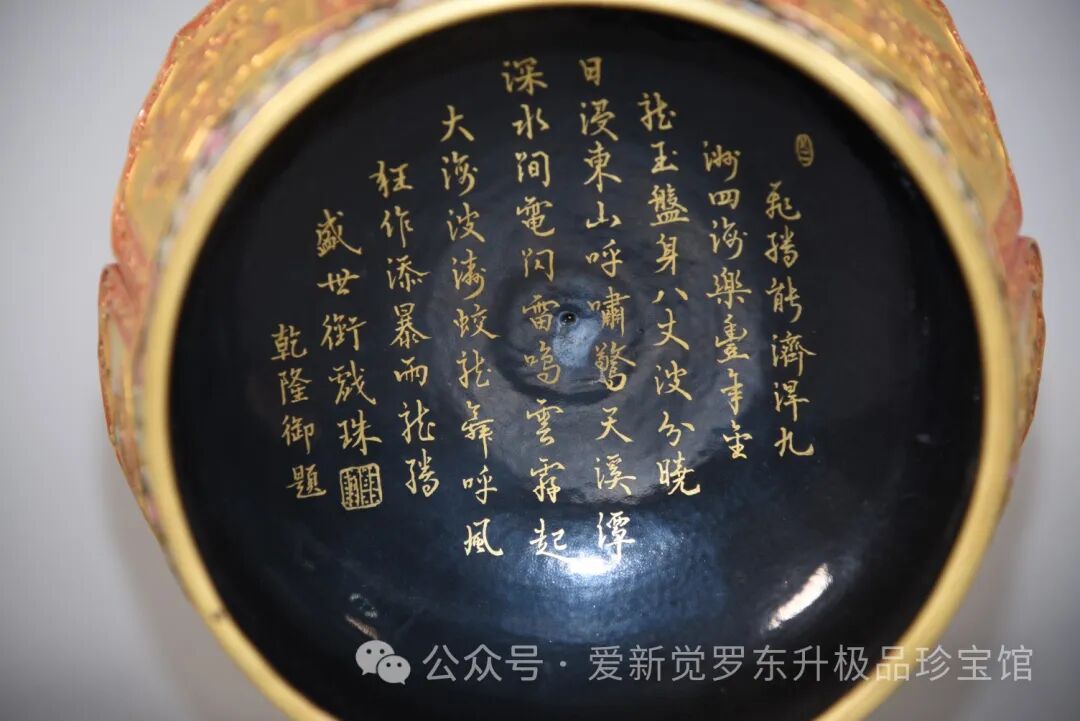 飛騰能濟淠九
洲四海樂豊年金
龍玉盤身八丈波分曉
日浸東山呼嘯驚天溪潭
深水間電閃雷鳴雲霧起
大海波濤蛟龍舞呼風
狂作添暴雨龍騰
盛世銜戲珠
乾隆御題
公众号·爱新觉罗东升极品珍宝馆